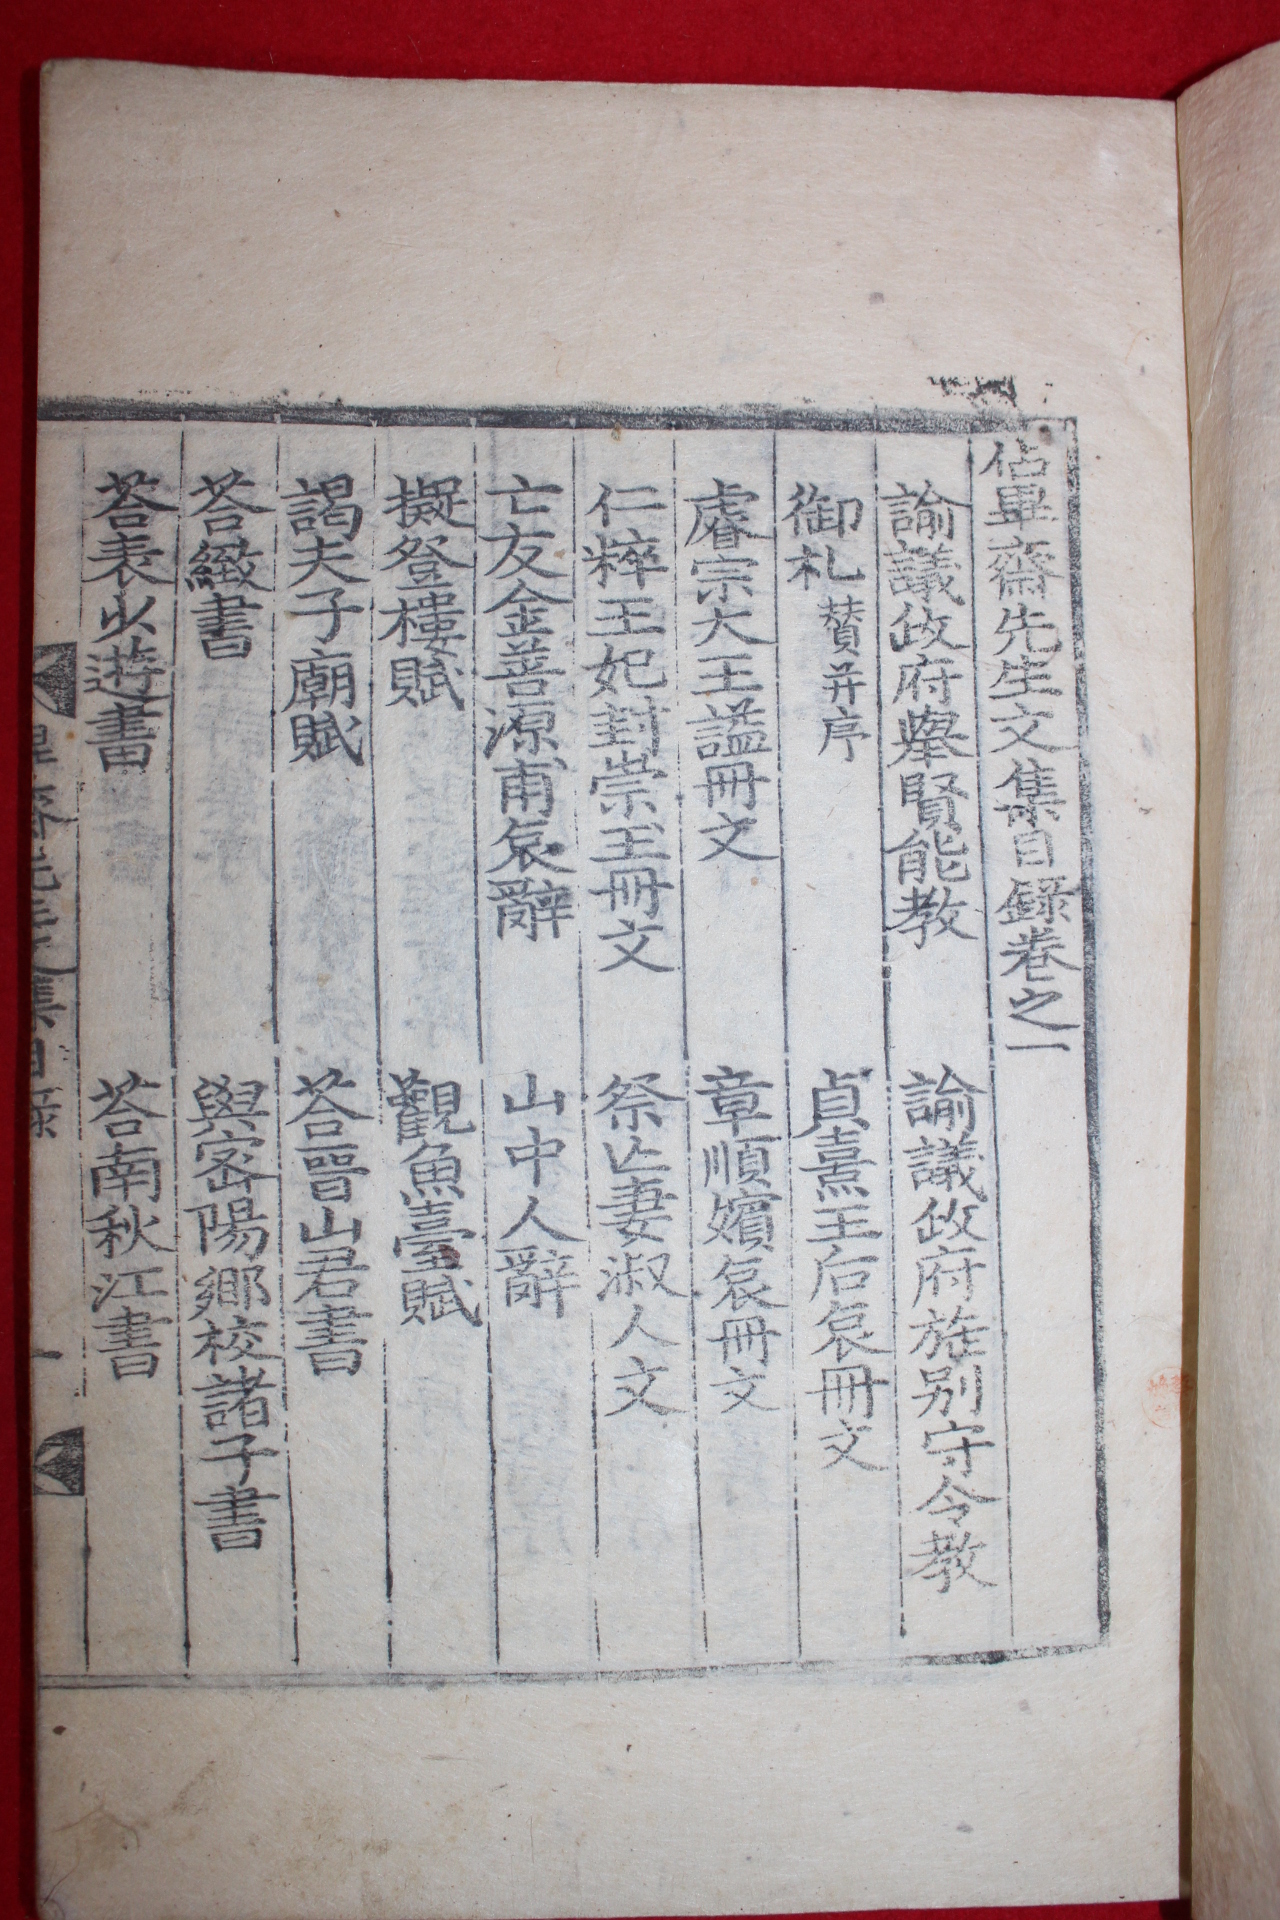 佔畢齋先生文集目録卷之一
諭議政府擧賢能教 諭議政府旌別守令教
御札贊并序 貞熹王后哀冊文
睿宗大王謚冊文 章順嬪哀冊文
仁粹王妃封崇王冊文 祭亡妻淑人文
亡友金善源甫哀辭 山中人辭
擬登樓賦 觀魚臺賦
謁夫子廟賦 荅晉山君書
荅緻書 與密陽鄉校諸子書
荅表少遊書 荅南秋江書
畢齋先生文集目録 一